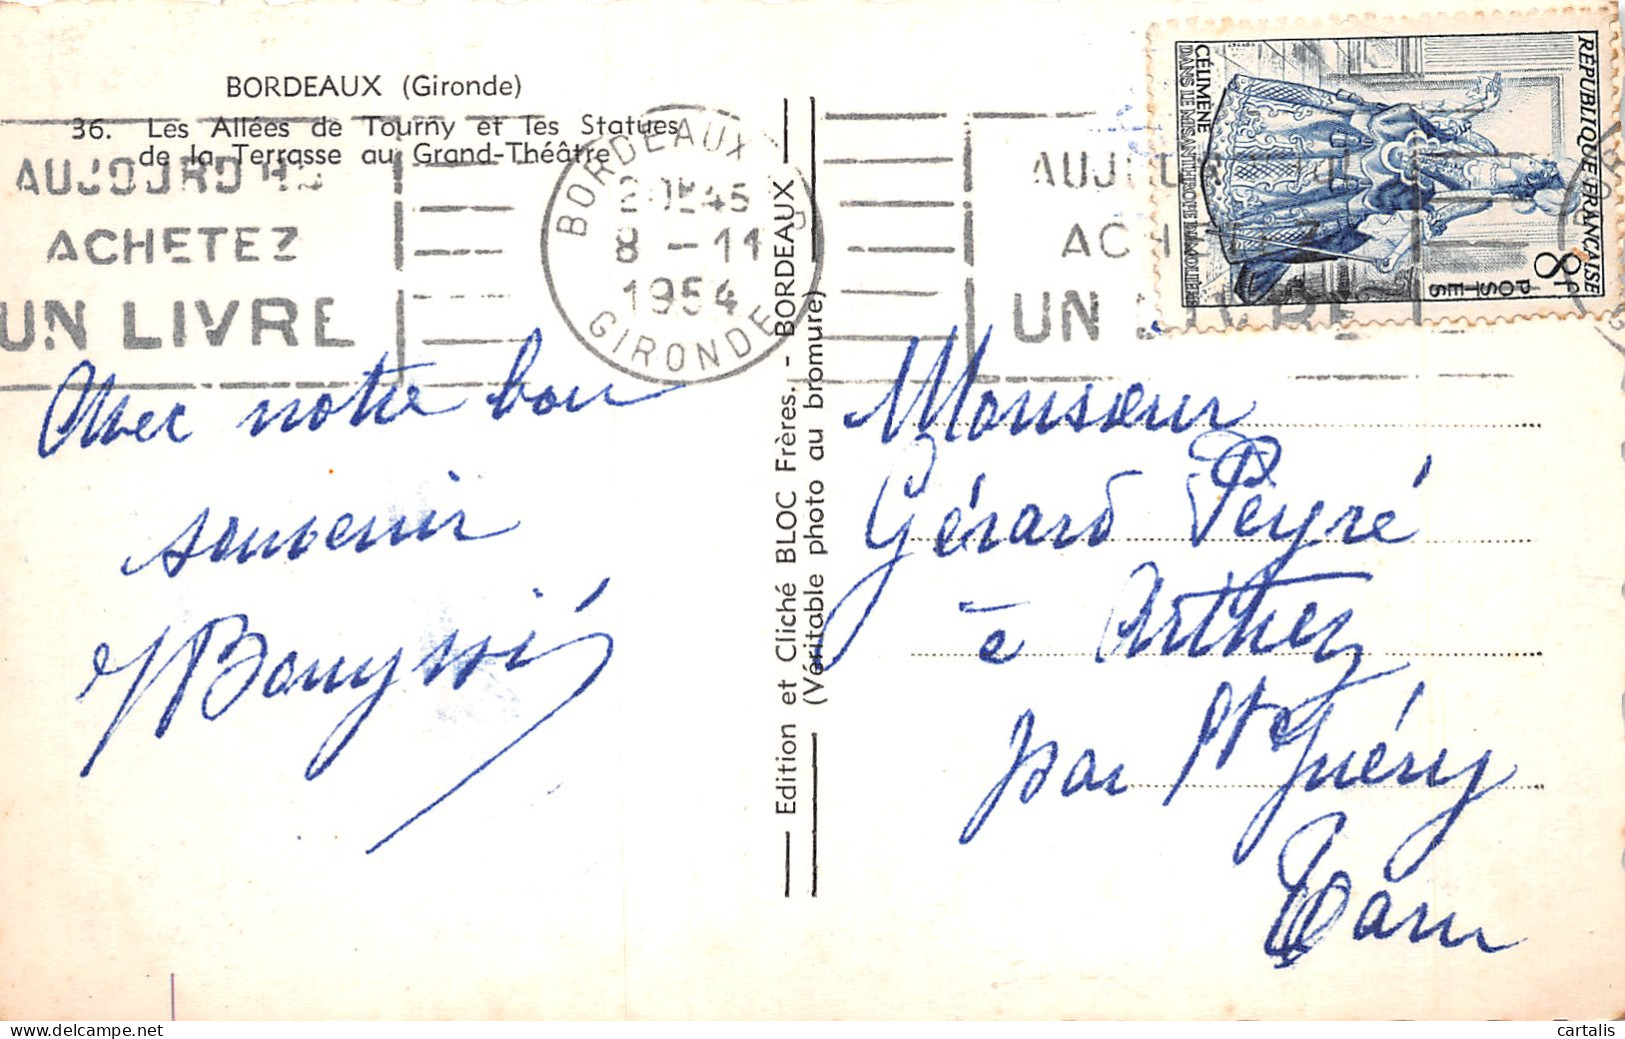 BORDEAUX (Gironde)
36. Les Allées de Tourny et les Statues
de la Terrasse au Grand-Théâtre
AUJOURD'HUI
ACHETEZ
UN LIVRE
BORDEAUX
8 - 11
1954
GIRONDE
AUJOURD'HUI
ACHETEZ
UN LIVRE
RÉPUBLIQUE FRANÇAISE
8f
POSTES
CÉLIMÈNE
DANS LE MISANTHROPE DE MOLIÈRE
Avec notre bon
souvenir
Edition et Cliché BLOC Frères, - BORDEAUX
(Véritable photo au bromure)
Monsieur
Gérard Peyré
à Arthez
par St Guéry
Tarn
cartalis